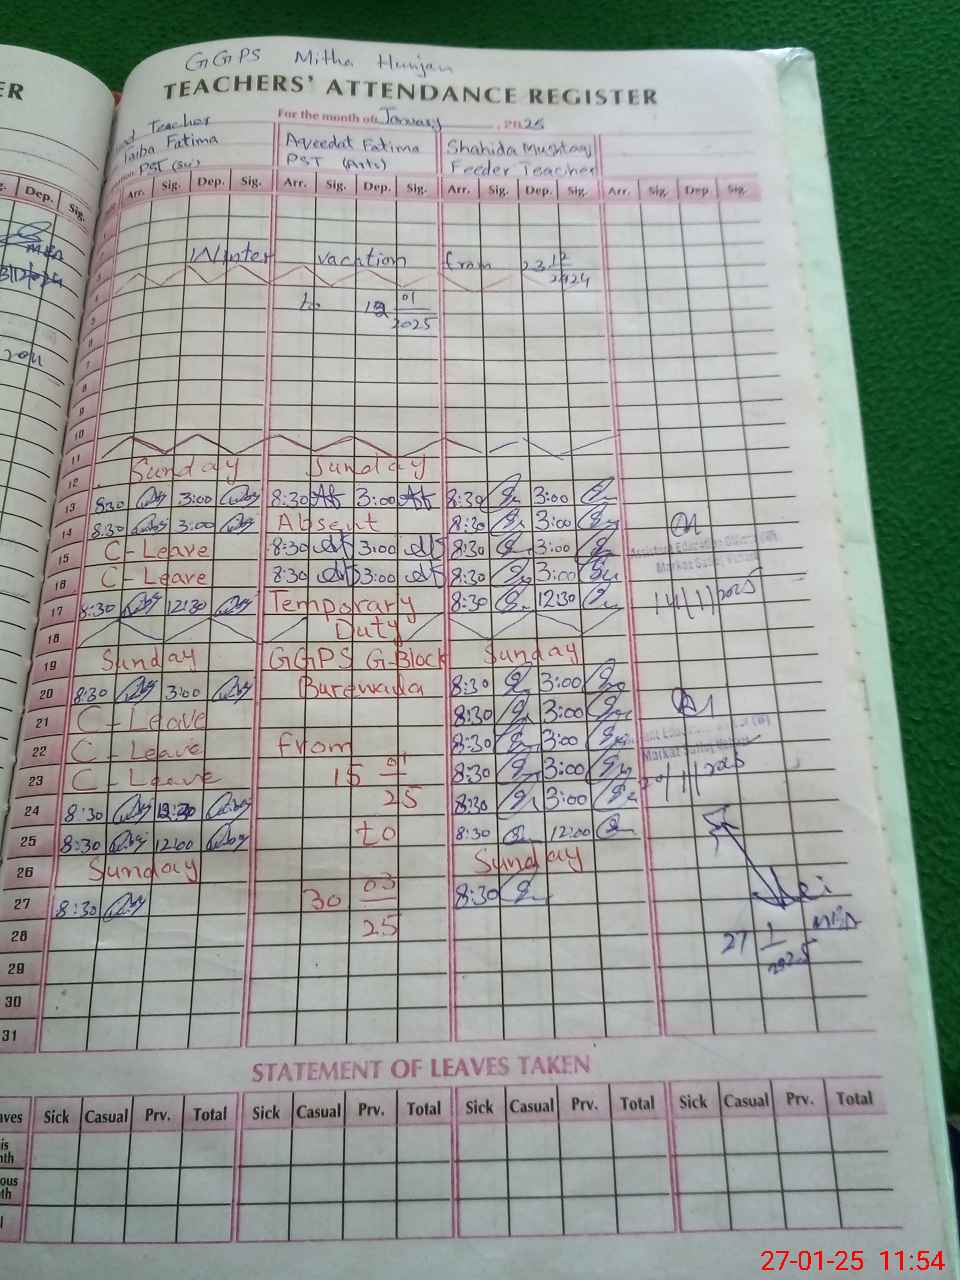 GGPS Mitha Hunjan
TEACHERS' ATTENDANCE REGISTER
For the month of January, 2025
Teacher
Taiba Fatima
PST (Sci)
Aqeedat Fatima
PST (Arts)
Shahida Mushtaq
Feeder Teacher
ER
Dep. Sig.
Arr. Sig. Dep. Sig. Arr. Sig. Dep. Sig. Arr. Sig. Dep. Sig. Arr. Sig. Dep Sig.
Winter vacation from 23 12 2024
4 to 12 01 2025
5
6
7
8
9
10
11
12 Sunday Sunday
13 8:30 3:00 8:30 3:00 8:30 3:00
14 8:30 3:00 Absent 8:30 3:00
15 C-Leave 8:30 3:00 8:30 3:00
16 C-Leave 8:30 3:00 8:30 3:00
17 8:30 12:30 Temporary 8:30 12:30
14/1/2025
18 Duty
19 Sunday GGPS G-Block Sunday
20 8:30 3:00 Burewada 8:30 3:00
21 C-Leave 8:30 3:00
22 C-Leave from 8:30 3:00
23 C-Leave 15 01 8:30 3:00
24 8:30 12:30 25 8:30 3:00
25 8:30 12:00 to 8:30 12:00
26 Sunday Sunday
27 8:30 30 03 8:30
28 25
27 1 2025
29
30
31
STATEMENT OF LEAVES TAKEN
Sick Casual Prv. Total Sick Casual Prv. Total Sick Casual Prv. Total Sick Casual Prv. Total
27-01-25 11:54